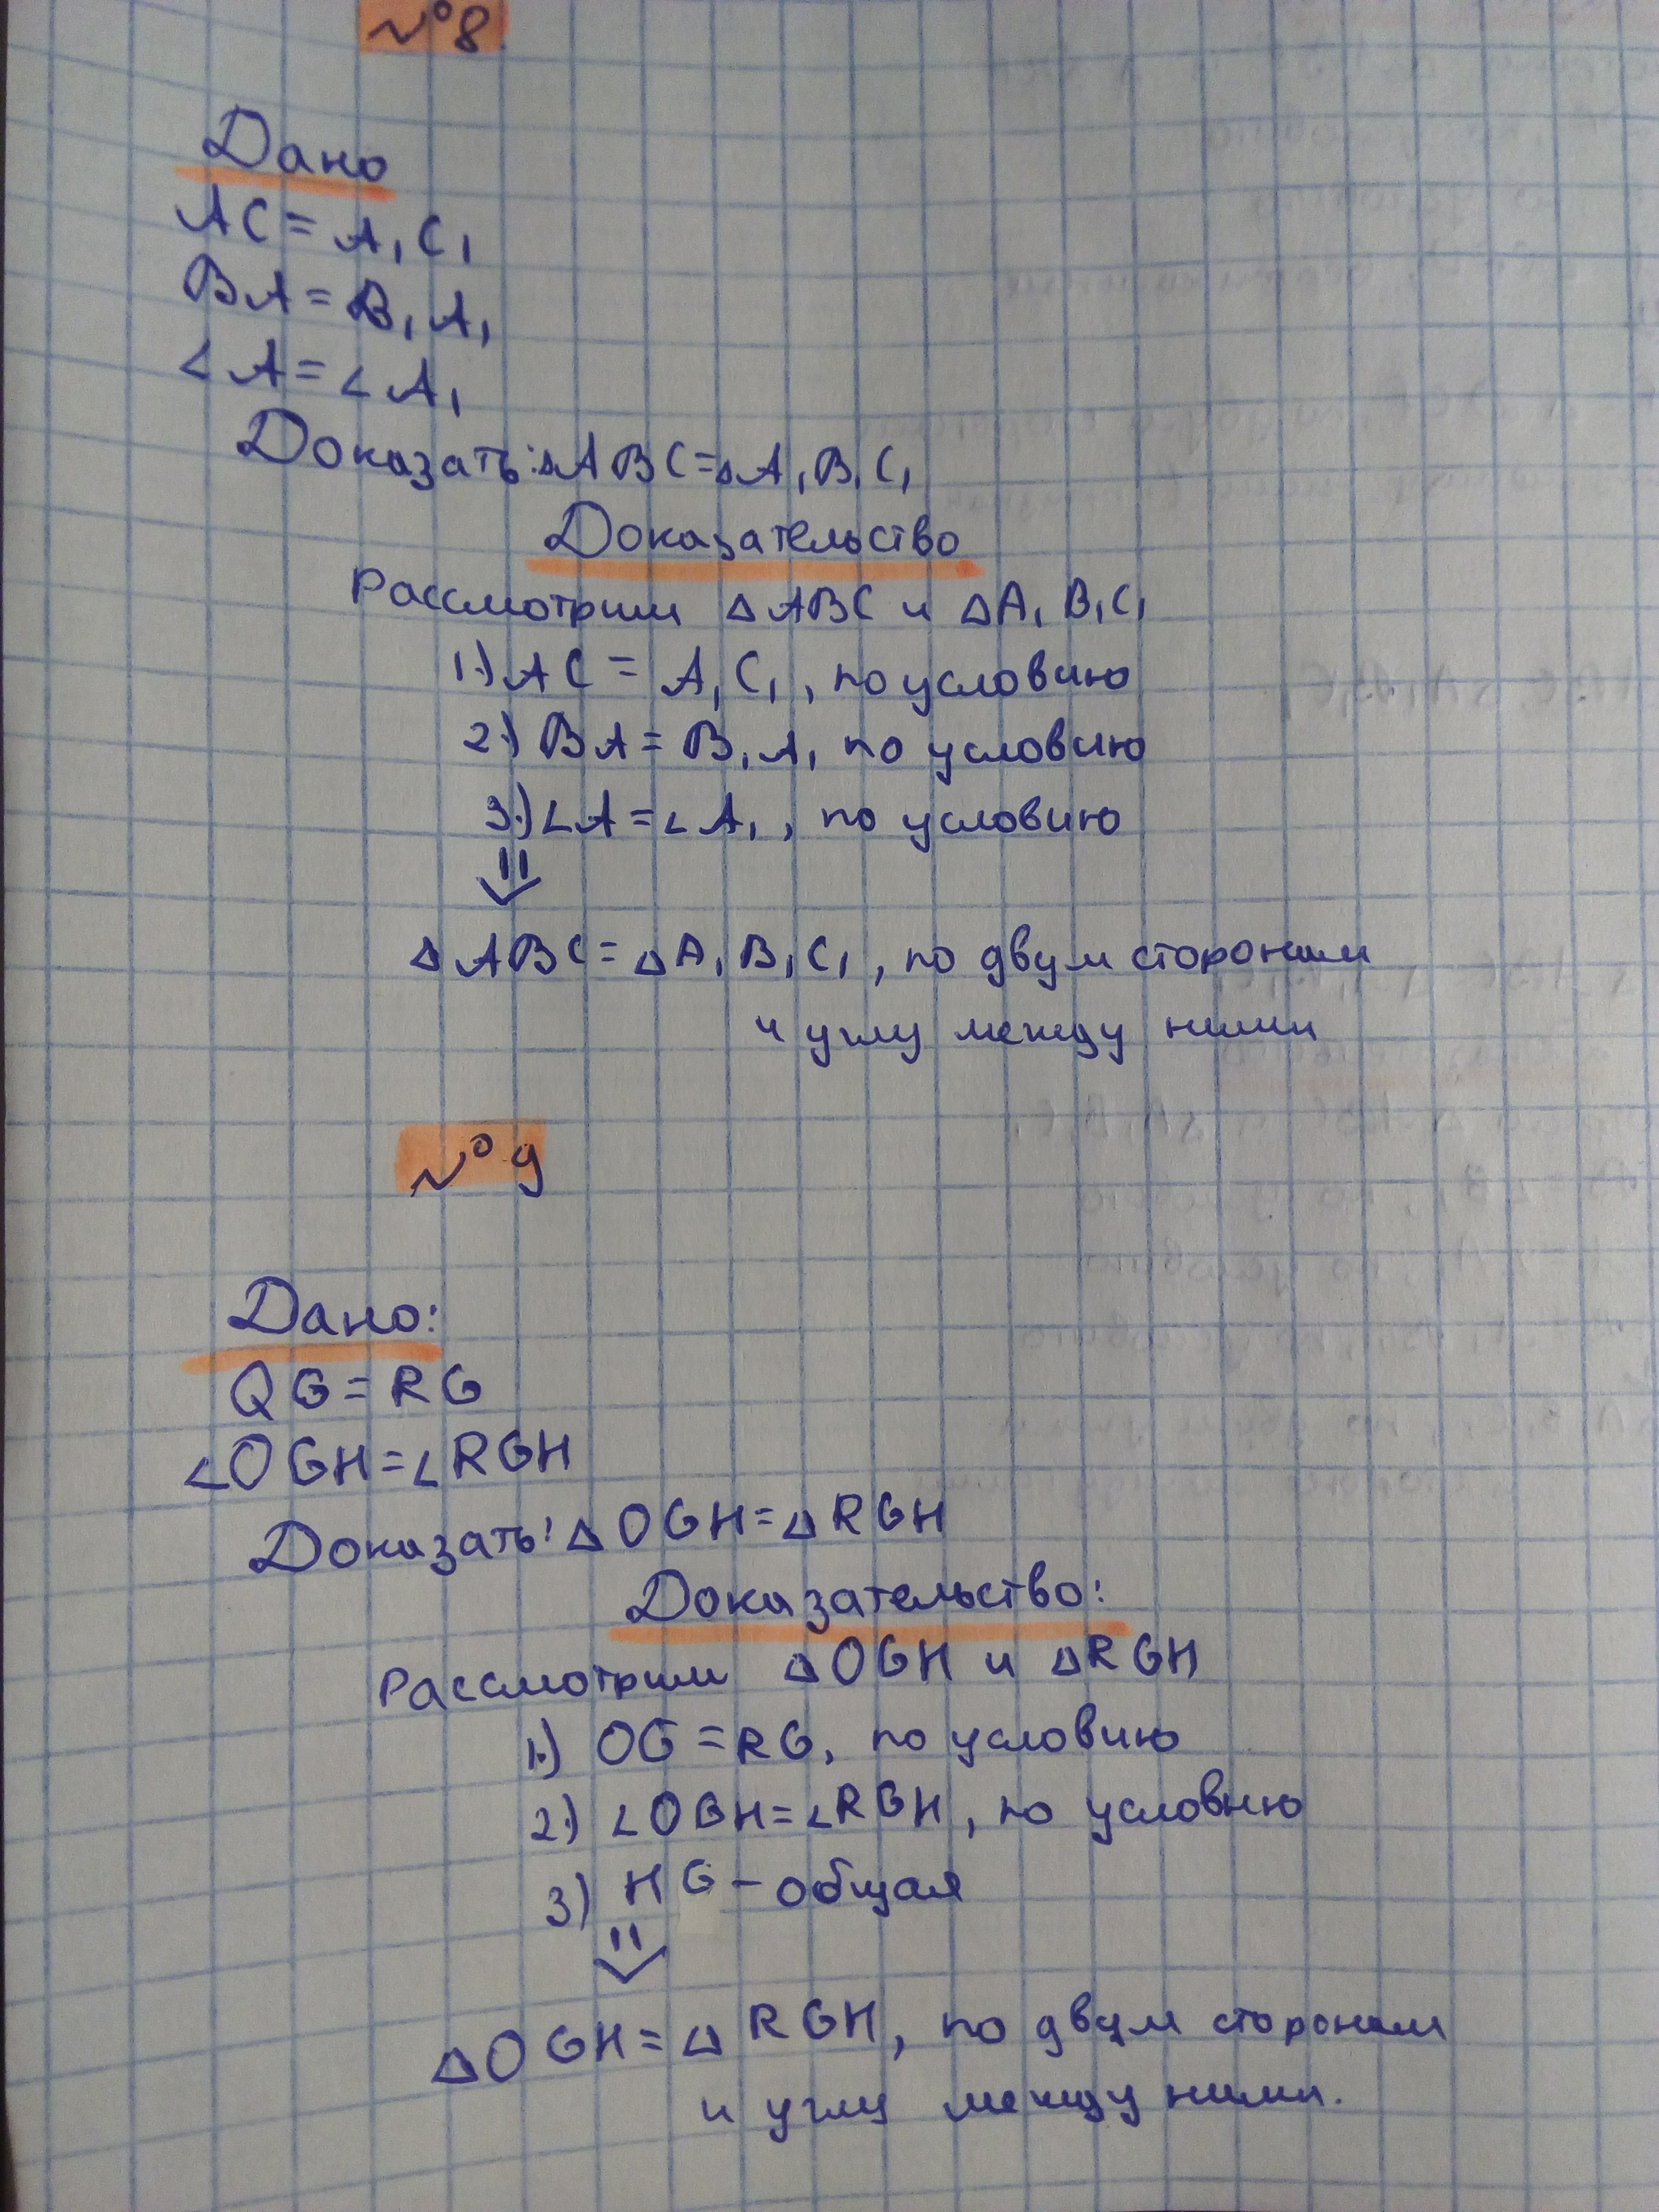 №8.
Дано
AC = A₁C₁
BA = B₁A₁
∠A = ∠A₁
Доказать: △ABC = △A₁B₁C₁
Доказательство
Рассмотрим △ABC и △A₁B₁C₁
1.) AC = A₁C₁, по условию
2.) BA = B₁A₁ по условию
3.) ∠A = ∠A₁, по условию
⇓
△ABC = △A₁B₁C₁, по двум сторонам
и углу между ними
№9
Дано:
QG = RG
∠OGH = ∠RGH
Доказать: △OGH = △RGH
Доказательство:
Рассмотрим △OGH и △RGH
1.) OG = RG, по условию
2.) ∠OGH = ∠RGH, по условию
3) HG – общая
⇓
△OGH = △RGH, по двум сторонам
и углу между ними.